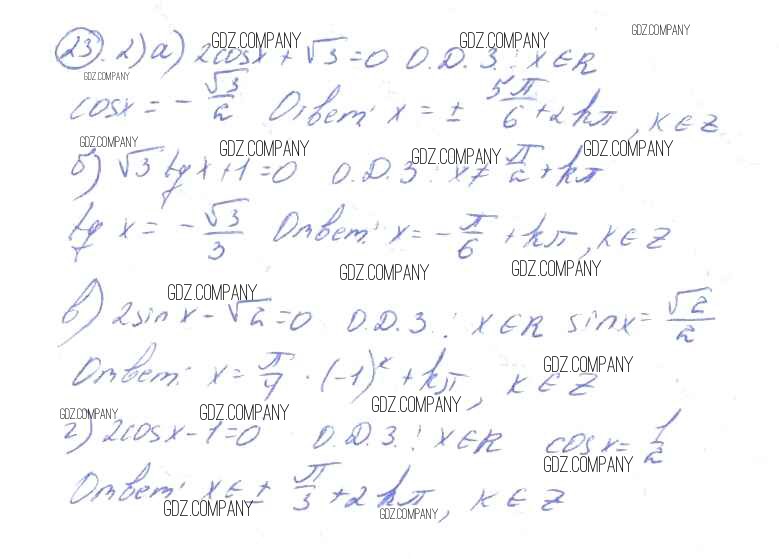 GDZ.COMPANY
23. 2) а) 2cosx + √3 = 0 О.Д.З.: x∈R
GDZ.COMPANY GDZ.COMPANY
GDZ.COMPANY
cosx = -√3/2 Ответ: x = ± 5π/6 + 2kπ, k∈Z
GDZ.COMPANY GDZ.COMPANY GDZ.COMPANY GDZ.COMPANY
б) √3 tg x + 1 = 0 О.Д.З: x ≠ π/2 + kπ
tg x = -√3/3 Ответ: x = -π/6 + kπ, k∈Z
GDZ.COMPANY GDZ.COMPANY
GDZ.COMPANY
в) 2sinx - √2 = 0 О.Д.З.: x∈R sinx = √2/2
Ответ: x = π/4 · (-1)^k + kπ, k∈Z
GDZ.COMPANY
GDZ.COMPANY GDZ.COMPANY GDZ.COMPANY
г) 2cosx - 1 = 0 О.Д.З.: x∈R cosx = 1/2
GDZ.COMPANY
Ответ: x ∈ ± π/3 + 2kπ, k∈Z
GDZ.COMPANY GDZ.COMPANY